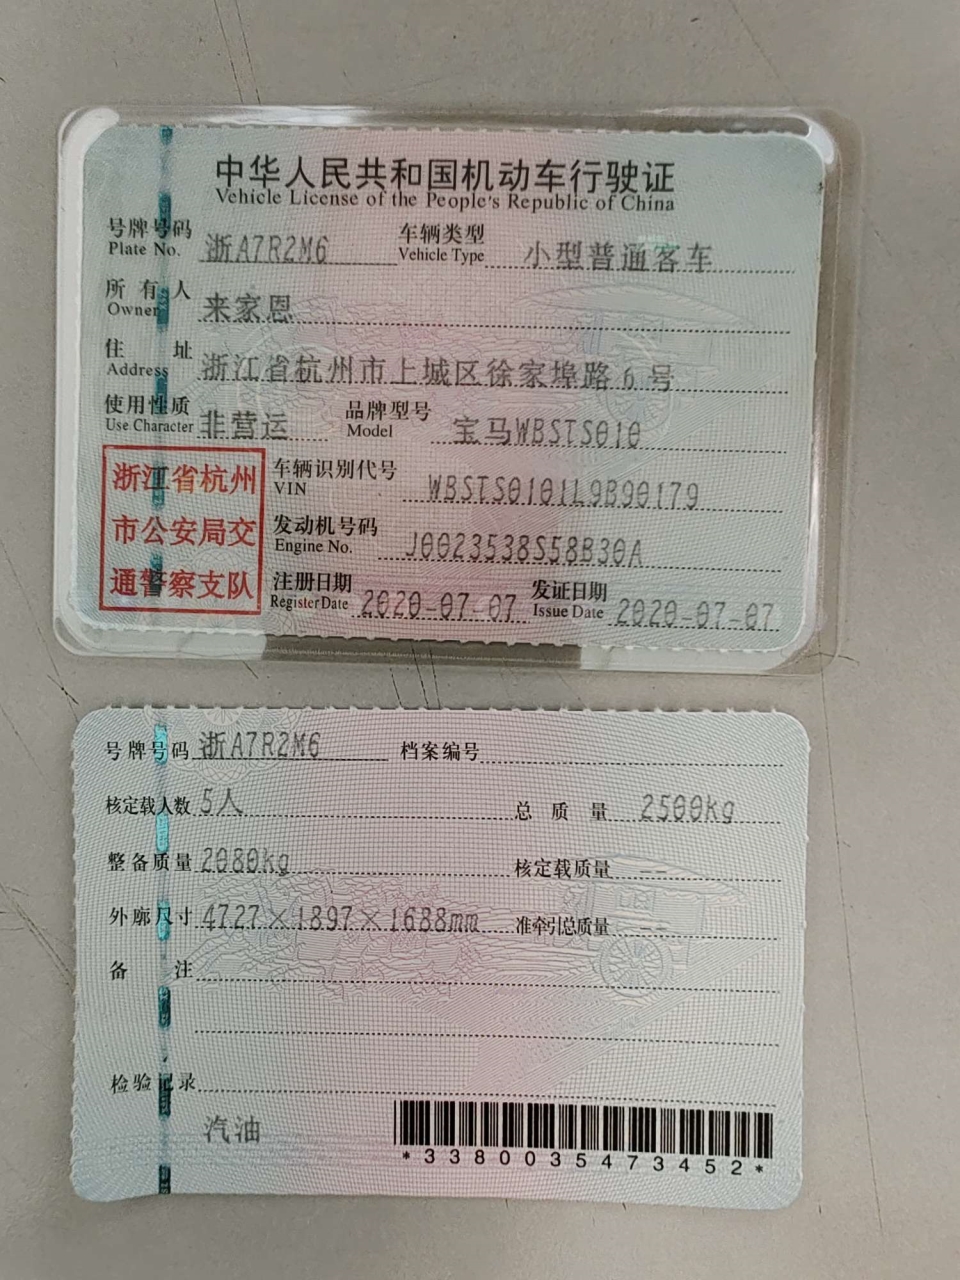 中华人民共和国机动车行驶证
Vehicle License of the People's Republic of China
号牌号码 浙A7R2M6 车辆类型 小型普通客车
Plate No. Vehicle Type
所有人 来家恩
Owner
住址 浙江省杭州市上城区徐家埠路6号
Address
使用性质 非营运 品牌型号 宝马WBSTS010
Use Character Model
浙江省杭州
市公安局交
通警察支队
车辆识别代号 WBSTS0101L9B90179
VIN
发动机号码 J0023538S58B30A
Engine No.
注册日期 2020-07-07 发证日期 2020-07-07
Register Date Issue Date
号牌号码 浙A7R2M6 档案编号
核定载人数 5人 总质量 2500kg
整备质量 2080kg 核定载质量 --
外廓尺寸 4727×1897×1688mm 准牵引总质量 --
备注
检验记录
汽油
*3380035473452*